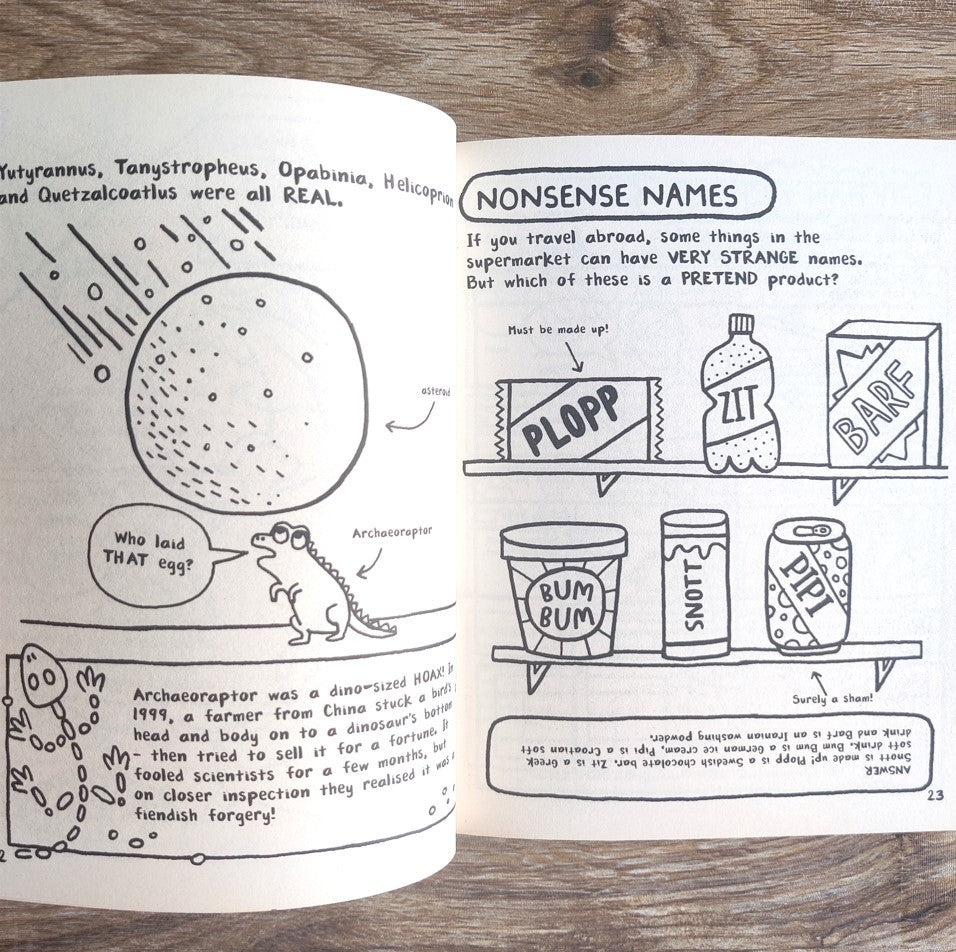 Yutyrannus, Tanystropheus, Opabinia, Helicoprion
and Quetzalcoatlus were all REAL.
asteroid
Who laid
THAT egg?
Archaeoraptor
Archaeoraptor was a dino-sized HOAX! In
1999, a farmer from China stuck a bird's
head and body on to a dinosaur's bottom
- then tried to sell it for a fortune. It
fooled scientists for a few months, but
on closer inspection they realised it was a
fiendish forgery!
2
NONSENSE NAMES
If you travel abroad, some things in the
supermarket can have VERY STRANGE names.
But which of these is a PRETEND product?
Must be made up!
PLOPP
ZIT
BARF
BUM
BUM
SNOTT
PIPI
Surely a sham!
ANSWER
Snott is made up! Plopp is a Swedish chocolate bar. Zit is a Greek
soft drink. Bum Bum is a German ice cream, Pipi is a Croatian soft
drink and Barf is an Iranian washing powder.
23